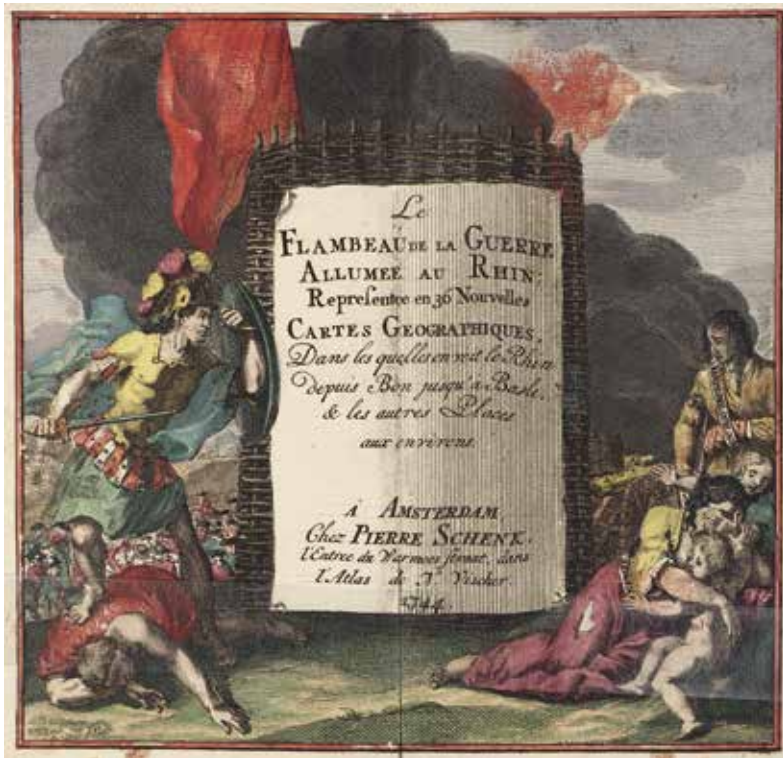 Le
FLAMBEAU DE LA GUERRE
ALLUMEE AU RHIN;
Representee en 36 Nouvelles
CARTES GEOGRAPHIQUES,
Dans les quelles on voit le Rhin
depuis Bon jusqu'a Basle,
& les autres Places
aux environs.
à AMSTERDAM,
Chez PIERRE SCHENK,
l'Entree du Warmoes straat, dans
l'Atlas de N. Visscher.
1744.